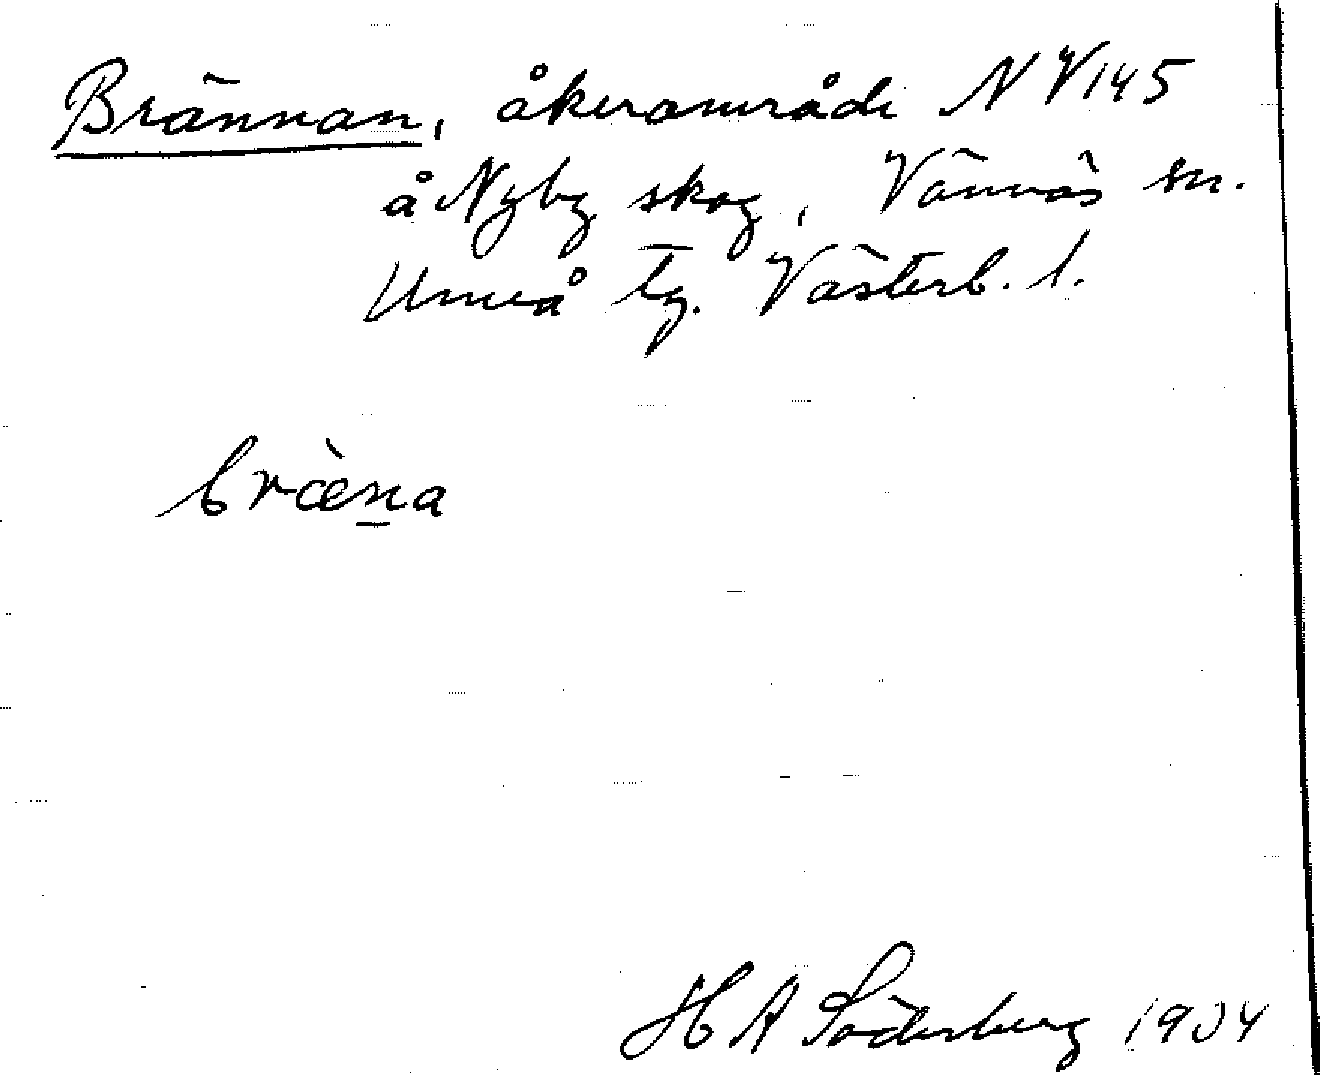 Brännan, åkerområde N V 145
å Nyby skog, Vännäs sn.
Umeå tg. Västerb. l.
bræ̀n̲a
H A Söderberg 1934